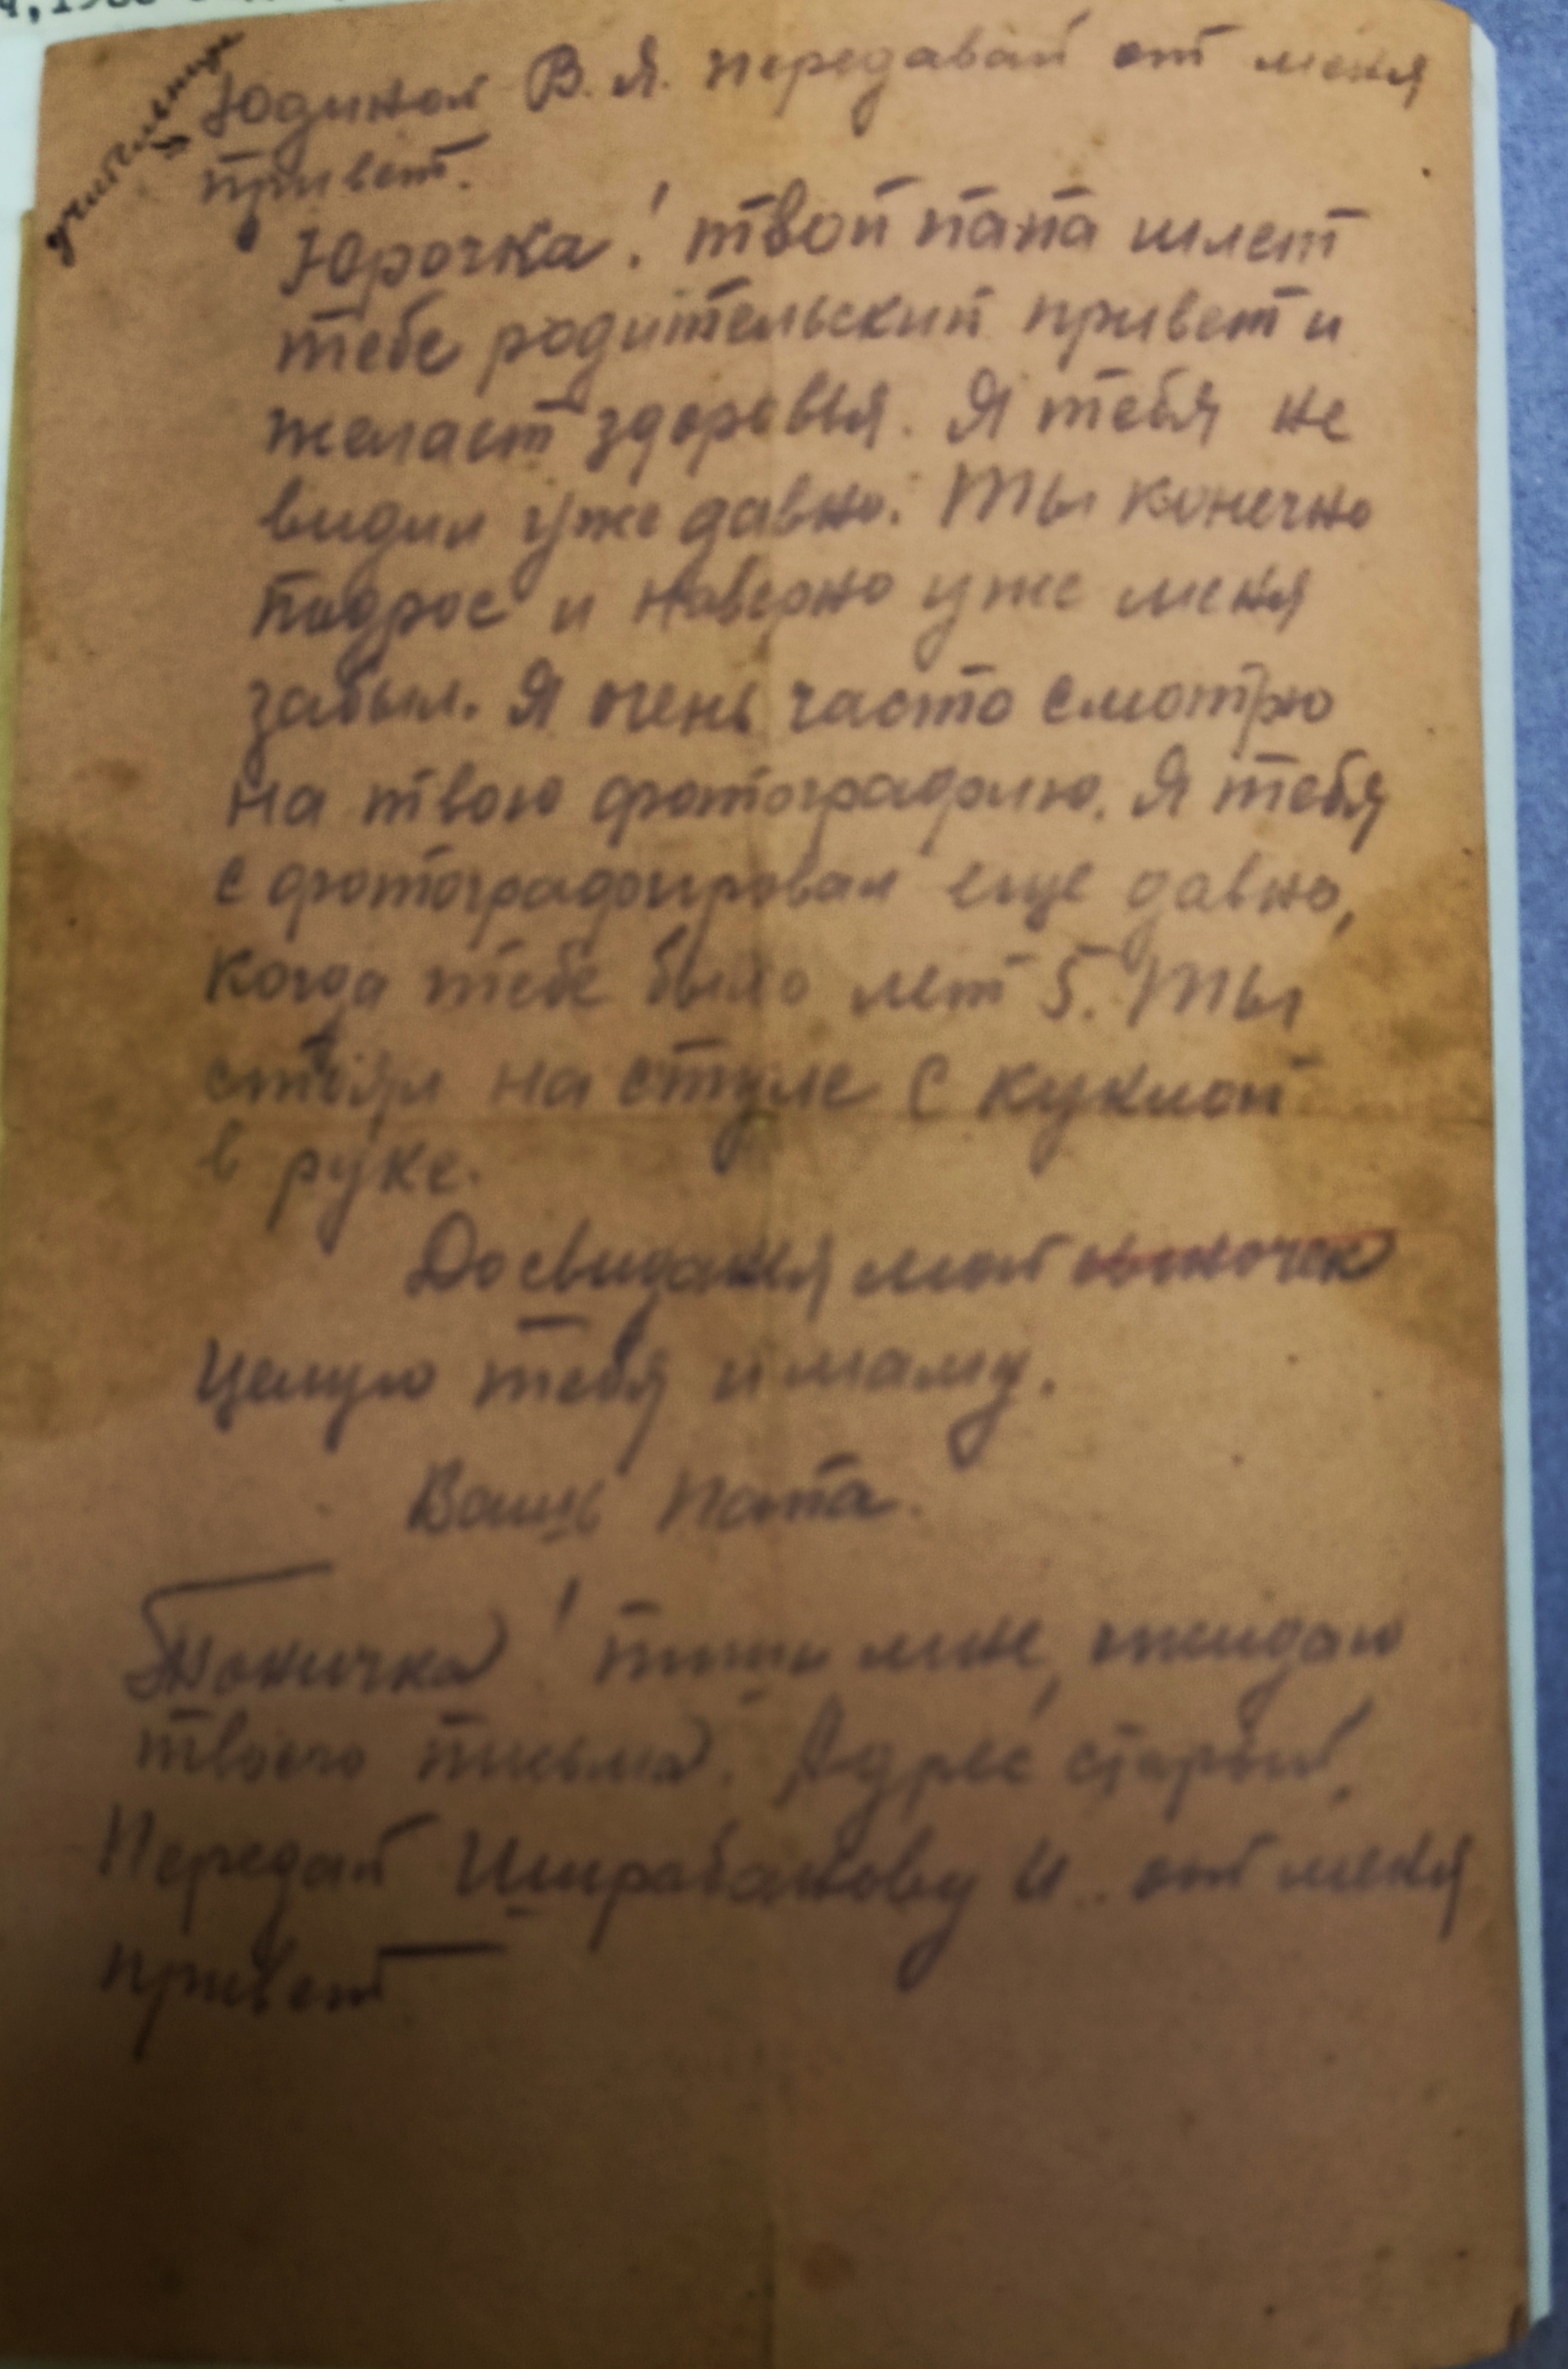 учительнице
Юдиной В.Я. передавай от меня
привет.
Юрочка! твой папа шлет
тебе родительский привет и
желает здоровья. Я тебя не
видил уже давно. Ты конечно
подрос и наверно уже меня
забыл. Я очень часто смотрю
на твою фотографию. Я тебя
сфотографировал еще давно,
когда тебе было лет 5. Ты
стоял на стуле с куклой
в руке.
Досвидания мой сыночек
Целую тебя и маму.
Ваш папа.
Тоничка! пиши мне, ожидаю
твоего письма. Адрес старый.
Передай от меня
привет